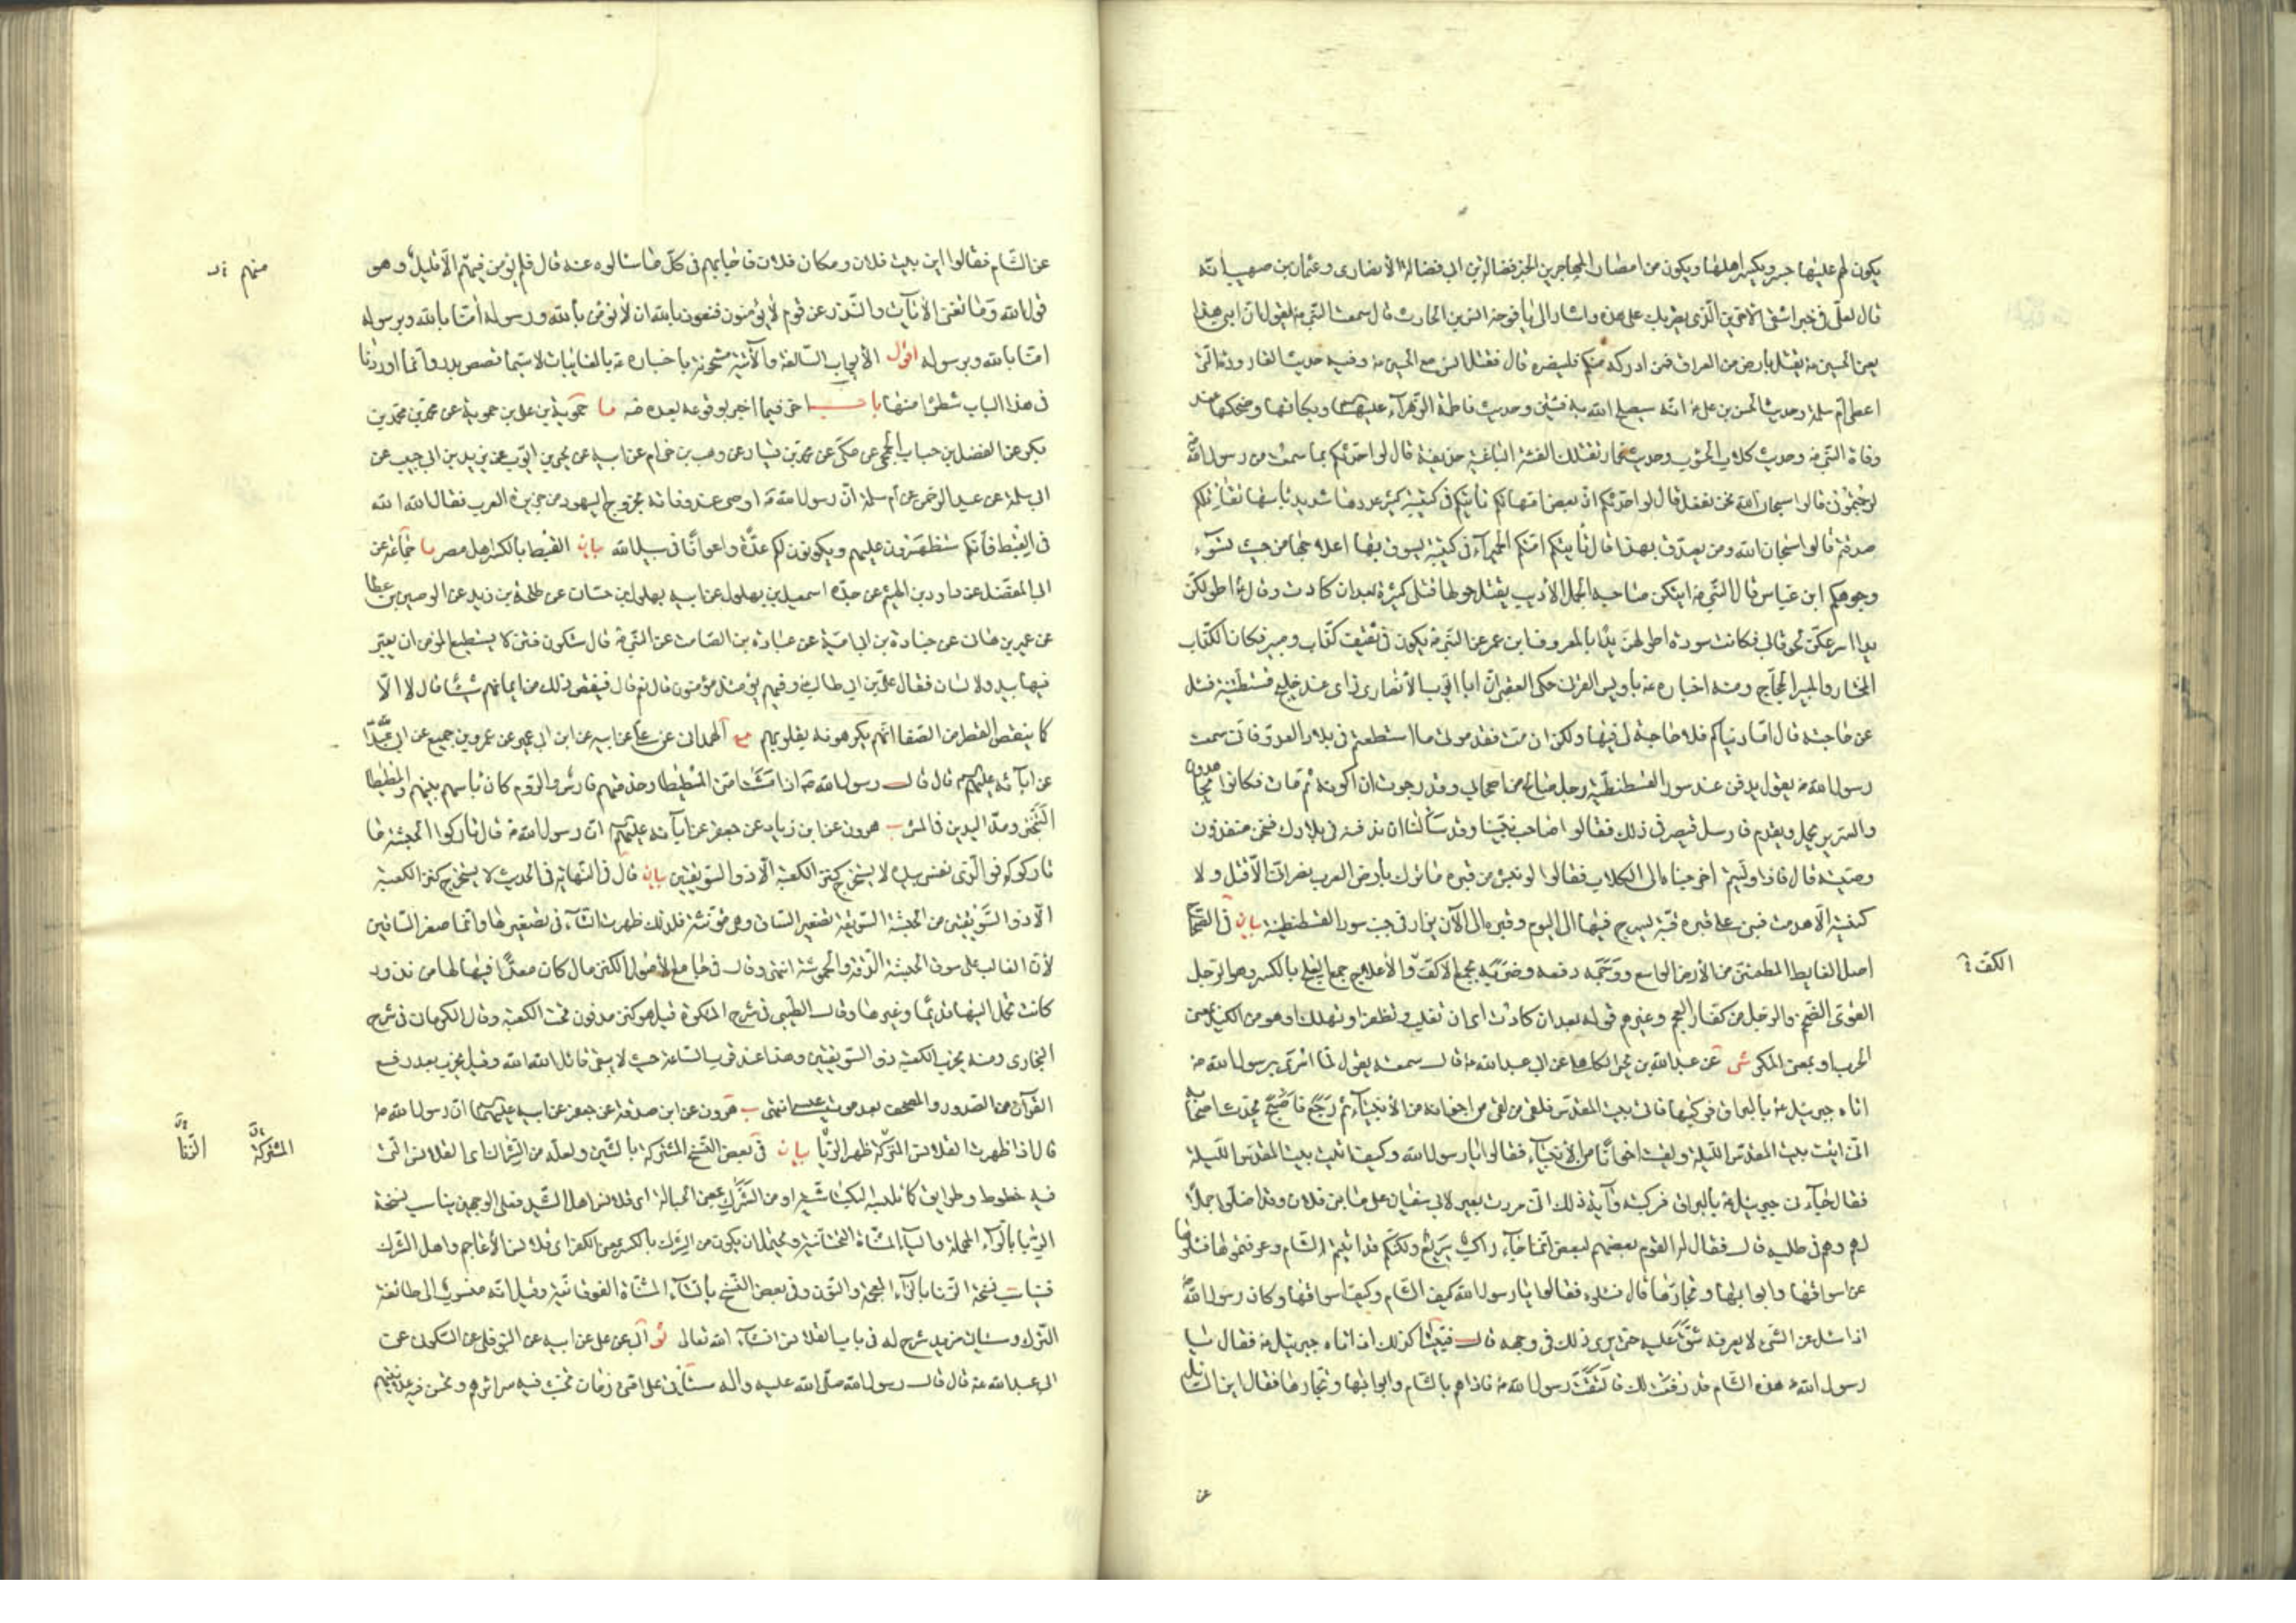 يكون لهم عليها جسر ويكثر اهلها ويكون من امصار المهاجرين الخبر فضالة بن ابي فضالة الأنصاري وعثمان بن صهيب انه
قال لعلي في خبر اشقى الآخرين الذي يضربك على هذه واشار الى يافوخه انس بن الحارث قال سمعت النبي ص يقول ان ابني هذا
يعني الحسين ع يقتل بأرض من العراق فمن ادركه منكم فلينصره قال فقتل انس مع الحسين ع وفيه حديث القارورة التي
اعطى ام سلمة وحديث الحسن بن علي ع انه سيصلح الله به فئتين وحديث فاطمة الزهراء عليها السلام وبكائها وضحكها عند
وفاة النبي ص وحديث كلاب الحوأب وحديث عمار تقتلك الفئة الباغية حذيفة قال لو احدثكم بما سمعت من رسول الله
لرجمتموني قالوا سبحان الله نحن نفعل قال لو احدثكم ان بعض امهاتكم تأتيكم في كتيبة كثير عددها شديد بأسها تقاتلكم
صدقتم قالوا سبحان الله ومن يصدق بهذا قال تأتيكم امكم الحميراء في كتيبة يسوق بها اعلاجها من حيث تسوء
وجوهكم ابن عباس قال النبي ص ايتكن صاحبة الجمل الأدبب يقتل حولها قتلى كثيرة بعد ان كادت وقال ص اطولكن
يدا اسرعكن لحوقا بي فكانت سودة اطولهن يدا بالمعروف ابن عمر عن النبي ص يكون في ثقيف كذاب ومبير فكان الكذاب
المختار والمبير الحجاج ومنه اخباره ع بأويس القرني حكى العقبي ان ابا ايوب الأنصاري رأى عند خليج قسطنطنية فسئل
عن حاجته قال اما دنياكم فلا حاجة لي فيها ولكن ان مت فقدموني ما استطعتم في بلاد العدو فاني سمعت
رسول الله ص يقول يدفن عند سور القسطنطنية رجل صالح من اصحابي وقد رجوت ان اكونه ثم مات فكانوا يجاهدون
والسرير يحمل ويقدم فارسل قيصر في ذلك فقالوا صاحب نبينا وقد سألنا ان ندفنه في بلادك ونحن منفذون
وصيته قال فاذا وليتم اخرجناه الى الكلاب فقالوا لو نبش من قبره ما ترك بأرض العرب نصراني الا قتل ولا
كنيسة الا هدمت فبنى على قبره قبة يسرج فيها الى اليوم وقبره الى الآن يزار في جنب سور القسطنطنية بيان في الصحاح
اصل الغايط المطمئن من الأرض الواسع ووجمه دفعه وضربه بجمع الاكف والأعلاج جمع العلج بالكسر وهو الرجل
الكف ؟
القوي الضخم والرجل من كفار العجم وغيرهم قوله بعد ان كادت اي ان تغلب وتظفر او تهلك او هو من الكيد بمعنى
الحرب او بمعنى المكر شى عن عبد الله بن بحر الكاهلي عن ابي عبد الله ع قال سمعته يقول لما اسرى برسول الله ص
اتاه جبرئيل ع بالبراق فركبها فاتى بيت المقدس فلقى من لقى من اخوانه من الأنبياء ثم رجع فاصبح يحدث اصحابه
اني اتيت بيت المقدس الليلة ولقيت اخوانا من الأنبياء فقالوا يا رسول الله وكيف اتيت بيت المقدس الليلة
فقال جاءني جبرئيل ع بالبراق فركبته وآية ذلك اني مررت بعير لابي سفيان على ماء بني فلان وقد اضلوا جملا
لهم وهم في طلبه قال فقال القوم بعضهم لبعض انما جاء راكب سريع ولكنكم قد اتيتم الشام وعرفتموها فسلوه
عن اسواقها وابوابها وتجارها قال فسئلوه فقالوا يا رسول الله كيف الشام وكيف اسواقها وكان رسول الله
اذا سئل عن الشيء لا يعرفه شق عليه حتى يرى ذلك في وجهه قال فبينا كذلك اذ اتاه جبرئيل ع فقال يا
رسول الله هذه الشام قد رفعت لك فالتفت رسول الله ص فاذا هو بالشام وابوابها وتجارها فقال اين السائل
عن
عن الشام فقالوا اين بيت فلان ومكان فلان فاجابهم في كل ما سألوه عنه قال فلم يؤمن فيهم الا قليل وهو
منهم
قول الله وما تغني الآيات والنذر عن قوم لا يؤمنون فنعوذ بالله ان لا نؤمن بالله ورسوله آمنا بالله وبرسوله
آمنا بالله وبرسوله اقول الأبواب السالفة والآتية مشحونة باخباره ع بالغايبات لا سيما قصص بدر وانما اوردنا
في هذا الباب شطرا منها باب آخر فيما اخبر بوقوعه بعده ص ما حموية بن علي بن حموية عن محمد بن محمد بن
بكر عن الفضل بن حباب الجمحي عن مكي عن محمد بن يسار عن وهب بن حزام عن ابيه عن يحيى بن ايوب عن يزيد بن ابي حبيب عن
ابي سلمة عن عبد الرحمن عن ام سلمة ان رسول الله ص اوصى عند وفاته بخروج اليهود من جزيرة العرب فقال الله الله
في القبط فانكم ستظهرون عليهم ويكونون لكم عدة واعوانا في سبيل الله بيان القبط بالكسر اهل مصر ما جماعة عن
ابي المفضل عن داود بن الهيثم عن جده اسمعيل بن بهلول عن ابيه بهلول بن حسان عن طلحة بن زيد عن الوصين بن عطا
عن عمير بن هان عن جنادة بن ابي امية عن عبادة بن الصامت عن النبي ص قال ستكون فتن لا يستطيع المؤمن ان يغير
فيها بيد ولا لسان فقال علي بن ابي طالب وفيهم يومئذ مؤمنون قال نعم قال فينقص ذلك من ايمانهم شيئا قال لا الا
كما ينقص القطر من الصفا انهم يكرهونه بقلوبهم مع الهمداني عن علي عن ابيه عن ابن ابي عمير عن عمرو بن جميع عن ابي عبد الله
عن آبائه عليهم السلام قال قال رسول الله ص اذا مشت امتي المطيطا وخدمتهم فارس والروم كان بأسهم بينهم والمطيطا
التبختر ومد اليدين في المشي ب هرون عن ابن زياد عن جعفر عن آبائه عليهم السلام ان رسول الله ص قال تاركوا الحبشة ما
تاركوكم فوالذي نفسي بيده لا يستخرج كنز الكعبة الا ذو السويقتين بيان قال في النهاية في الحديث لا يستخرج كنز الكعبة
الا ذو السويقتين من الحبشة السويقة تصغير الساق وهي مؤنثة فلذلك ظهرت التاء في تصغيرها وانما صغر الساقين
لأن الغالب على سوق الحبشة الدقة والحموشة انتهى وقال في جامع الأصول الكنز مال كان معدا فيها لها من نذور
كانت تحمل اليها قديما وغيرها وقال الطيبي في شرح المشكوة قيل هو كنز مدفون تحت الكعبة وقال الكرماني في شرح
البخاري ومنه يخرب الكعبة ذو السويقتين وهذا عند قرب الساعة حيث لا يبقى قائل الله الله وقيل يخرب بعد رفع
القرآن من الصدور والمصحف بعد موت عيسى انتهى ب هرون عن ابن صدقة عن جعفر عن ابيه عليهما السلام ان رسول الله ص
قال اذا ظهرت القلانس المتركة ظهر الزنا بيان في بعض النسخ المشتركة بالشين ولعله من الشراك اي القلانس التي
المشتركة الزنا
فيه خطوط وطرايق كما تلبسه البكتاشية او من الشرك بمعنى الحبالة اي قلانس اهل الشيد فعلى الوجهين يناسب نسخة
الريا بالراء المهملة والياء المثناة التحتانية ويحتمل ان يكون من الشرك بالكسر بمعنى الكفر اي قلانس الأعاجم واهل الشرك
فيناسب نسخة الزنا بالزاء المعجمة والنون وفي بعض النسخ بالتاء المثناة الفوقانية وقيل انه منسوب الى طائفة
الترك وسيأتي مزيد شرح له في باب القلانس انشاء الله تعالى ثو ابي عن علي عن ابيه عن النوفلي عن السكوني عن
ابي عبد الله ع قال قال رسول الله صلى الله عليه وآله سيأتي على امتي زمان تخبث فيه سرائرهم وتحسن فيه علانيتهم